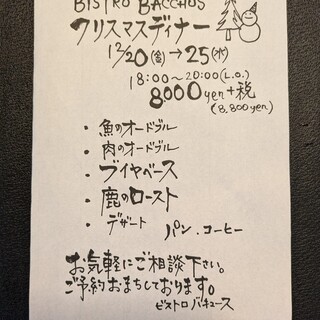 BISTRO BACCHUS
クリスマスディナー
12/20(金)→25(水)
18:00〜20:00(L.O.)
8000yen+税
(8,800yen)
・魚のオードブル
・肉のオードブル
・ブイヤベース
・鹿のロースト
・デザート パン.コーヒー
お気軽にご相談下さい。
ご予約おまちしております。
ビストロバキュース